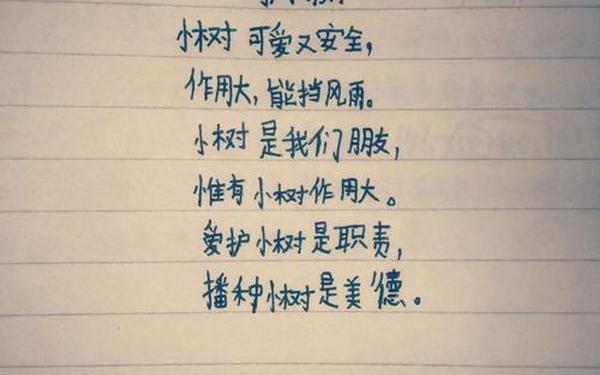 小树可爱又安全，
作用大，能挡风雨。
小树是我们朋友，
惟有小树作用大。
爱护小树是职责，
播种小树是美德。